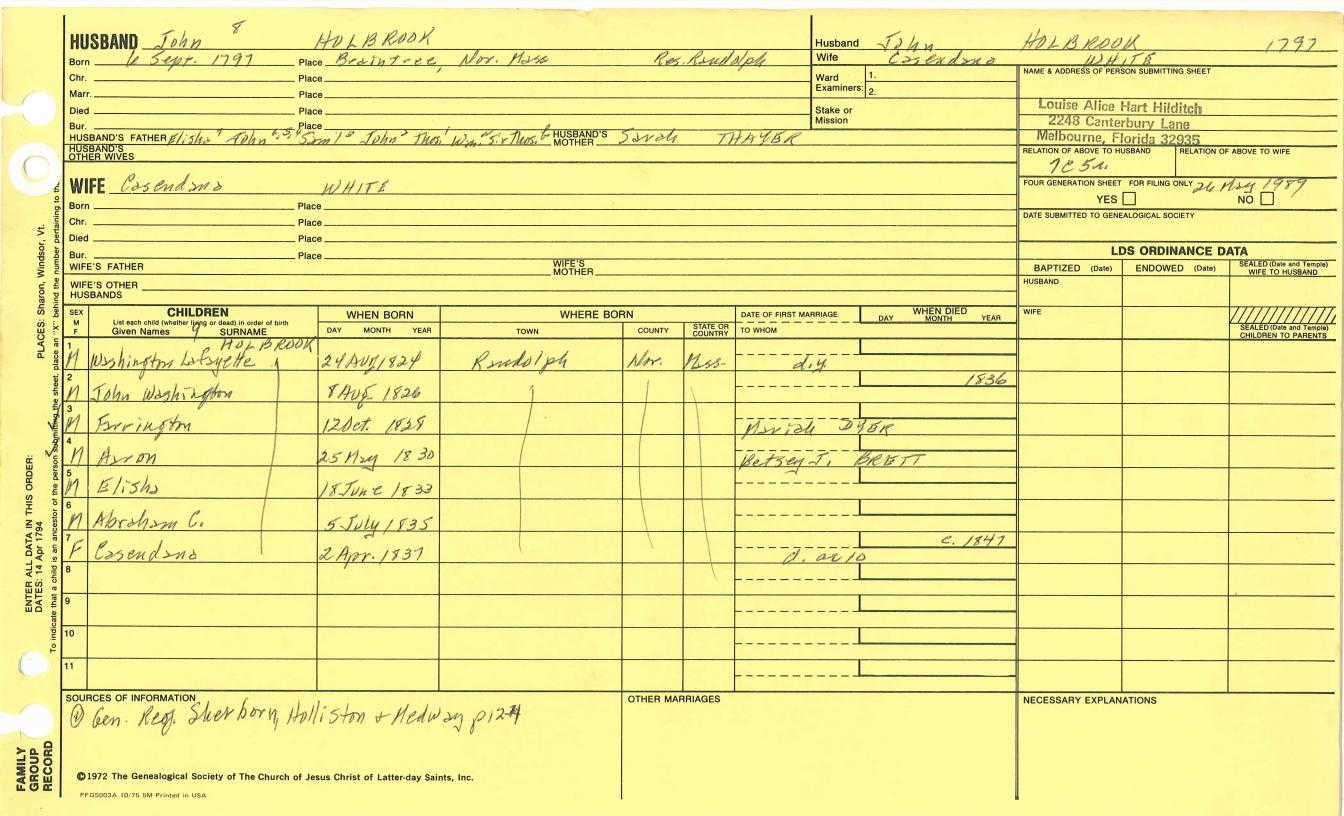 HUSBAND John 8 HOLBROOK
Born 6 Sept. 1797 Place Braintree, Nor. Mass Res. Randolph
Chr. Place
Marr. Place
Died Place
Bur. Place
HUSBAND'S FATHER Elisha 7 John 6, 5, 4 Saml 3 John 2 Thos. 1 Wm. Sr Thos. HUSBAND'S MOTHER Sarah THAYER
HUSBAND'S OTHER WIVES
WIFE Casendana WHITE
Born Place
Chr. Place
Died Place
Bur. Place
WIFE'S FATHER WIFE'S MOTHER
WIFE'S OTHER HUSBANDS
Husband John HOLBROOK 1797
Wife Casendana WHITE
Ward Examiners: 1. 2.
Stake or Mission
NAME & ADDRESS OF PERSON SUBMITTING SHEET
Louise Alice Hart Hilditch
2248 Canterbury Lane
Melbourne, Florida 32935
RELATION OF ABOVE TO HUSBAND RELATION OF ABOVE TO WIFE
7C 5r
FOUR GENERATION SHEET FOR FILING ONLY 26 May 1989
YES NO
DATE SUBMITTED TO GENEALOGICAL SOCIETY
LDS ORDINANCE DATA
BAPTIZED (Date) ENDOWED (Date) SEALED (Date and Temple) WIFE TO HUSBAND
HUSBAND
WIFE
SEALED (Date and Temple) CHILDREN TO PARENTS
SEX M F CHILDREN WHEN BORN WHERE BORN DATE OF FIRST MARRIAGE WHEN DIED
List each child (whether living or dead) in order of birth
Given Names 9 SURNAME DAY MONTH YEAR TOWN COUNTY STATE OR COUNTRY TO WHOM DAY MONTH YEAR
HOLBROOK
1 M Washington Lafayette 24 Aug 1824 Randolph Nor. Mss. d.y.
2 M John Washington 8 Aug 1826 1836
3 M Farrington 12 Oct. 1828 Mariah DYER
4 M Aaron 25 May 1830 Betsey J. BRETT
5 M Elisha 18 June 1833
6 M Abraham C. 5 July 1835
7 F Casendana 2 Apr. 1837 d. ae 10 c. 1847
8
9
10
11
SOURCES OF INFORMATION
① Gen. Reg. Sherborn, Holliston & Medway p 124
OTHER MARRIAGES
NECESSARY EXPLANATIONS
©1972 The Genealogical Society of The Church of Jesus Christ of Latter-day Saints, Inc.
PFGS003A 10/75 5M Printed in USA
FAMILY GROUP RECORD
ENTER ALL DATA IN THIS ORDER:
DATES: 14 Apr 1794
PLACES: Sharon, Windsor, Vt.
To indicate that a child is an ancestor of the person submitting the sheet, place an "X" behind the number pertaining to th